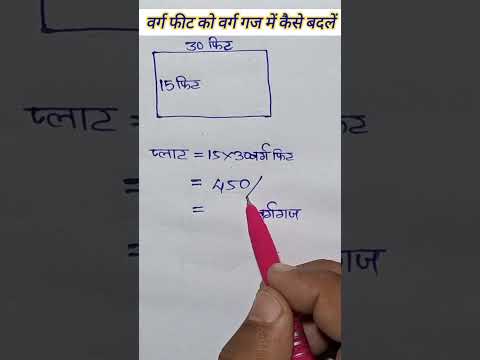 वर्ग फीट को वर्ग गज में कैसे बदलें
30 फिट
15 फिट
प्लाट = 15×30 वर्ग फिट
= 450/
= वर्गगज